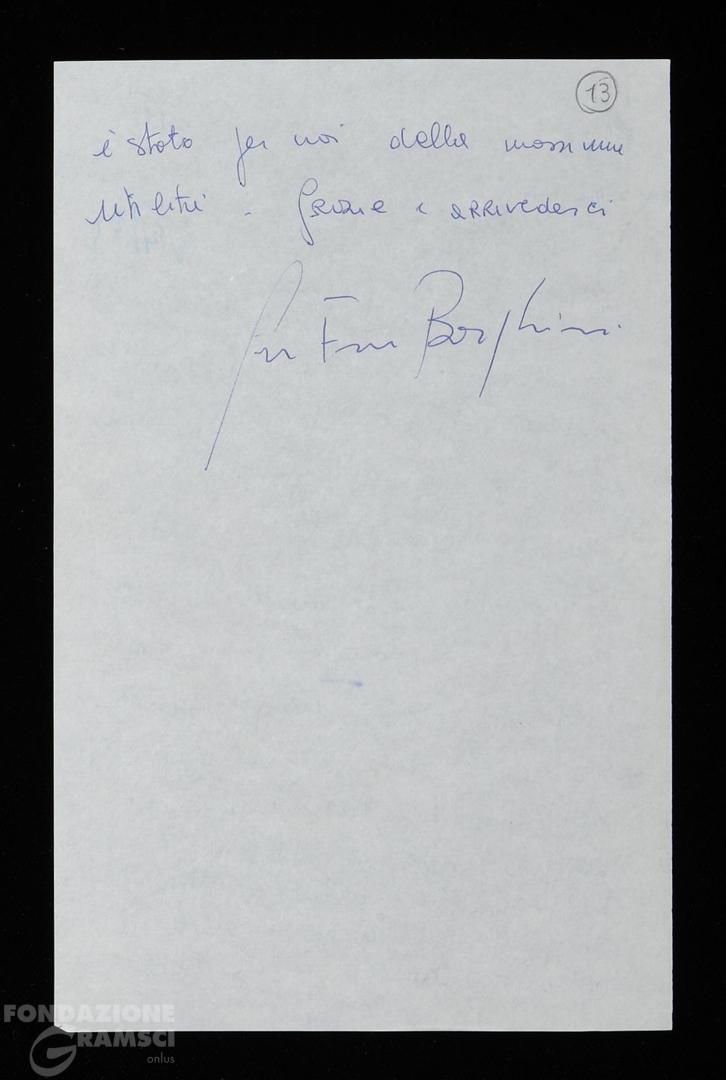 13
è stato per noi della massima
utilità. Grazie e arrivederci
Borghini
FONDAZIONE
GRAMSCI
onlus